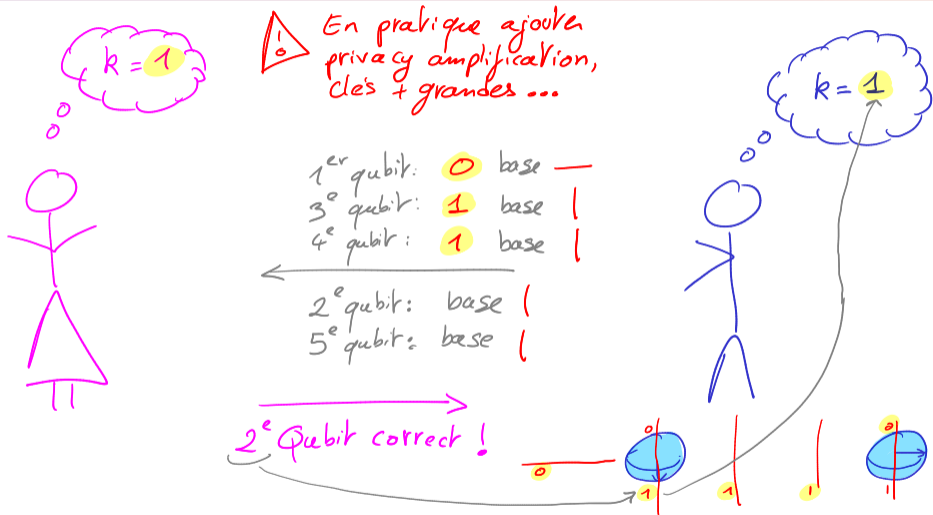 k = 1
En pratique ajouter
privacy amplification,
clés + grandes ...
k = 1
1er qubit: 0 base —
3e qubit: 1 base |
4e qubit: 1 base |
2e qubit: base |
5e qubit: base |
2e Qubit correct !
0 0
0 1 1 1 1